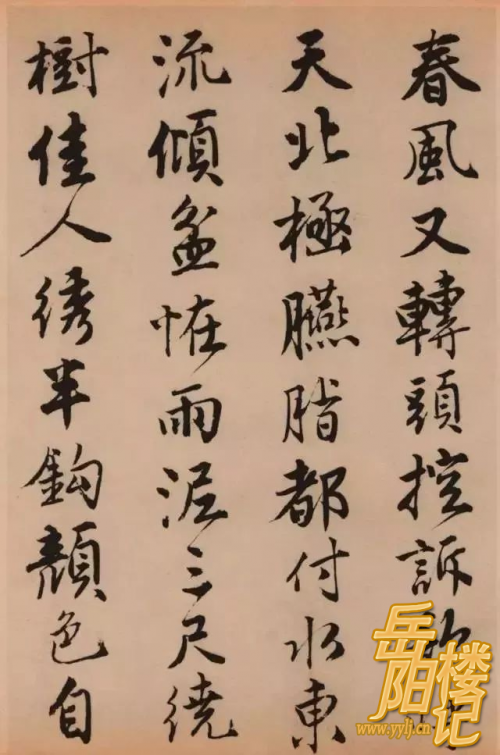 春風又轉頭控訴
天北極臙脂都付水東
流傾盆恠雨泥三尺繞
樹佳人綉半鈎顏色自
岳阳楼记
www.yylj.cn